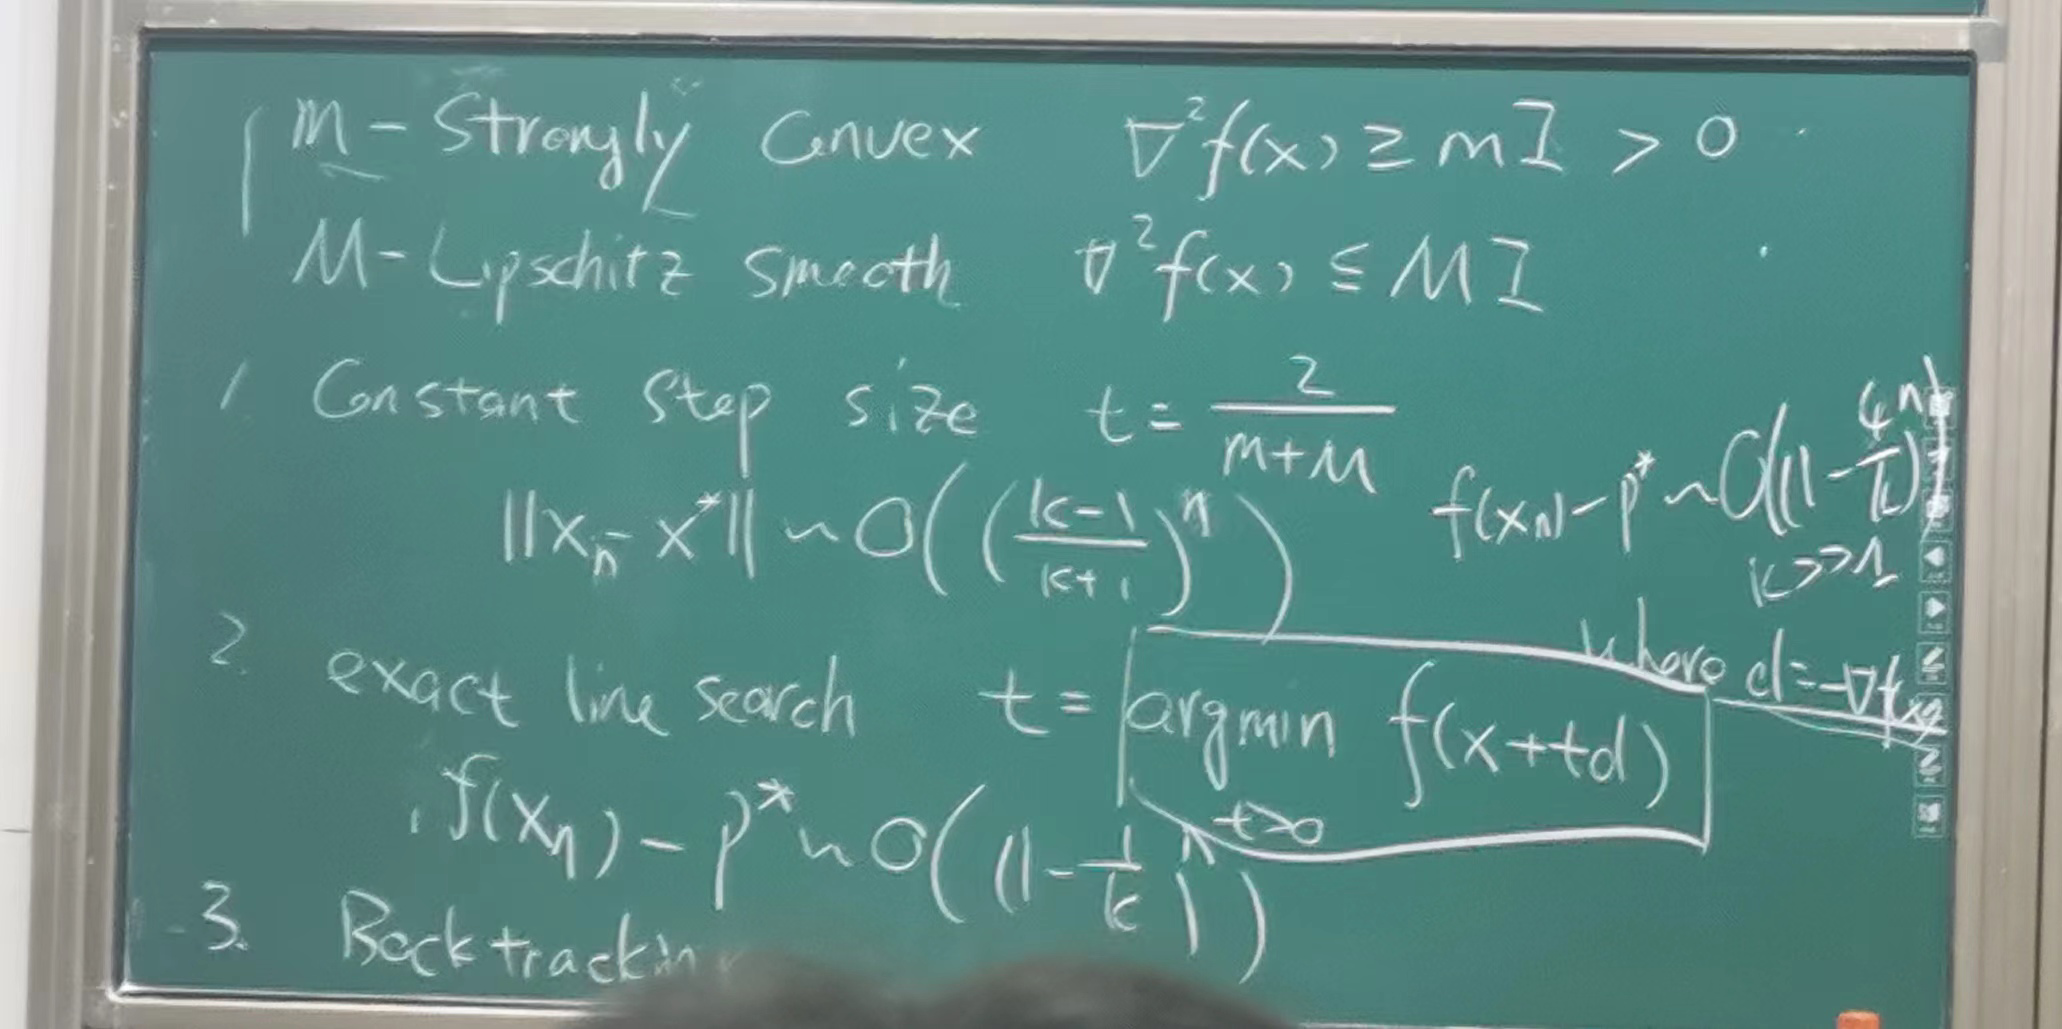 m - Strongly Convex ∇²f(x) ≥ mI > 0
M - Lipschitz smooth ∇²f(x) ≤ MI
1. Constant step size t = 2/(m+M)
||xₙ - x*|| ~ O(((k-1)/(k+1))ⁿ) f(xₙ) - p* ~ O((1 - 4/k)ⁿ)
k >> 1
2. exact line search t = argmin f(x+td) where d = -∇f(x)
t>0
f(xₙ) - p* ~ O((1 - 1/k)ⁿ)
3. Backtracking